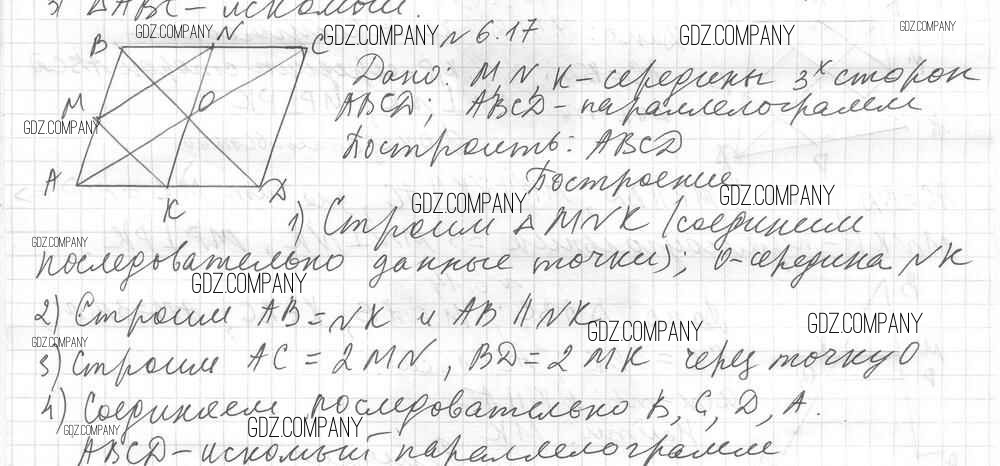 3) △ABC - искомый.
B N C
№ 6.17
Дано: M, N, K - середины 3х сторон
ABCD; ABCD - параллелограмм
M O
Построить: ABCD
A K D
Построение
1) Строим △MNK (соединим
последовательно данные точки); O - середина NK
2) Строим AB = NK и AB || NK
3) Строим AC = 2MN, BD = 2MK через точку O
4) Соединяем последовательно B, C, D, A.
ABCD - искомый параллелограмм
GDZ.COMPANY
GDZ.COMPANY
GDZ.COMPANY
GDZ.COMPANY
GDZ.COMPANY
GDZ.COMPANY
GDZ.COMPANY
GDZ.COMPANY
GDZ.COMPANY
GDZ.COMPANY
GDZ.COMPANY
GDZ.COMPANY
GDZ.COMPANY
GDZ.COMPANY